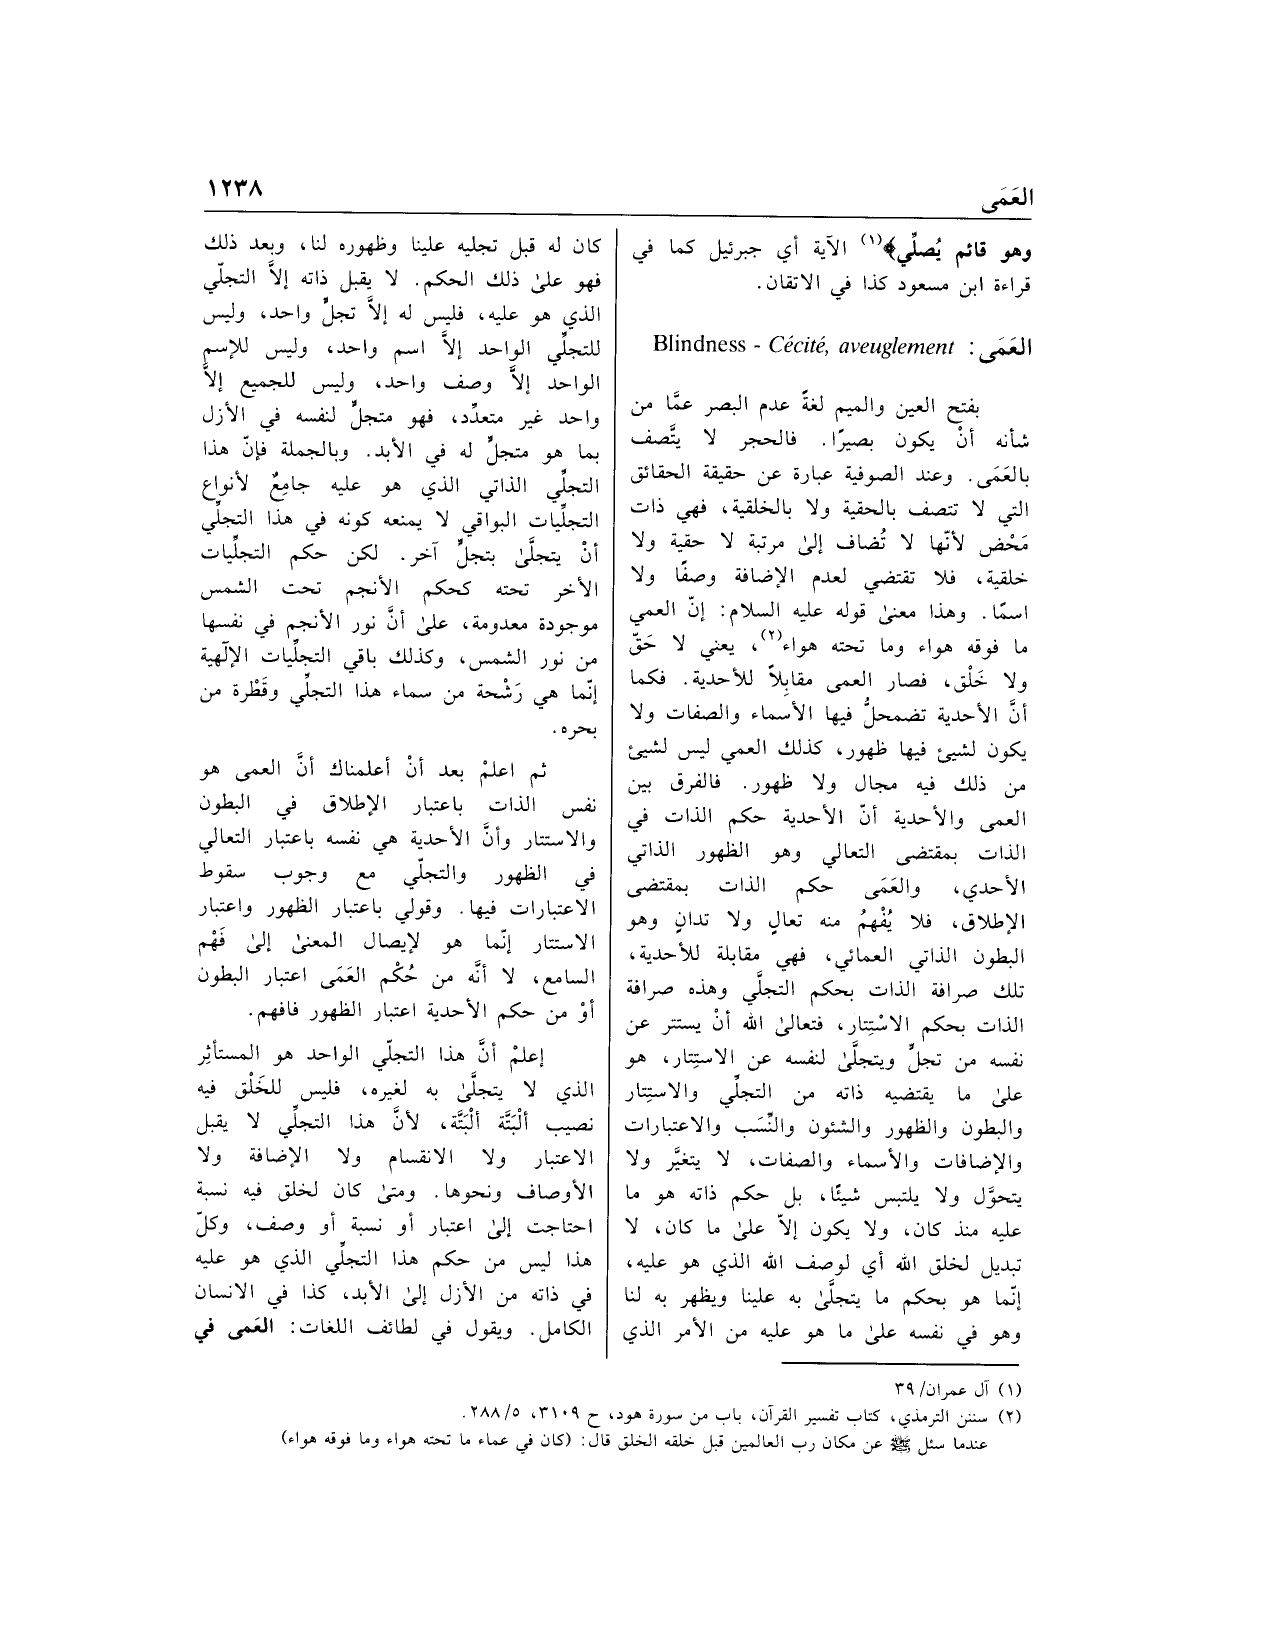 العَمَى
١٢٣٨
وهو قائم يُصلِّي﴾(١) الآية أي جبرئيل كما في
قراءة ابن مسعود كذا في الاتقان.
العَمَى: Blindness - Cécité, aveuglement
بفتح العين والميم لغةً عدم البصر عمَّا من
شأنه أنْ يكون بصيرًا. فالحجر لا يتَّصف
بالعَمَى. وعند الصوفية عبارة عن حقيقة الحقائق
التي لا تتصف بالحقية ولا بالخلقية، فهي ذات
مَحْض لأنّها لا تُضاف إلىٰ مرتبة لا حقية ولا
خلقية، فلا تقتضي لعدم الإضافة وصفًا ولا
اسمًا. وهذا معنىٰ قوله عليه السلام: إنّ العمي
ما فوقه هواء وما تحته هواء(٢)، يعني لا حَقّ
ولا خَلْق، فصار العمى مقابِلاً للأحدية. فكما
أنَّ الأحدية تضمحلُّ فيها الأسماء والصفات ولا
يكون لشيئ فيها ظهور، كذلك العمي ليس لشيئ
من ذلك فيه مجال ولا ظهور. فالفرق بين
العمى والأحدية أنّ الأحدية حكم الذات في
الذات بمقتضى التعالي وهو الظهور الذاتي
الأحدي، والعَمَى حكم الذات بمقتضى
الإطلاق، فلا يُفْهمُ منه تعالٍ ولا تدانٍ وهو
البطون الذاتي العمائي، فهي مقابلة للأحدية،
تلك صرافة الذات بحكم التجلّي وهذه صرافة
الذات بحكم الاسْتِتار، فتعالىٰ الله أنْ يستتر عن
نفسه من تجلٍّ ويتجلَّىٰ لنفسه عن الاستِتار، هو
علىٰ ما يقتضيه ذاته من التجلّي والاستِتار
والبطون والظهور والشئون والنِّسَب والاعتبارات
والإضافات والأسماء والصفات، لا يتغيَّر ولا
يتحوَّل ولا يلتبس شيئًا، بل حكم ذاته هو ما
عليه منذ كان، ولا يكون إلاّ علىٰ ما كان، لا
تبديل لخلق الله أي لوصف الله الذي هو عليه،
إنّما هو بحكم ما يتجلَّىٰ به علينا ويظهر به لنا
وهو في نفسه علىٰ ما هو عليه من الأمر الذي
كان له قبل تجليه علينا وظهوره لنا، وبعد ذلك
فهو علىٰ ذلك الحكم. لا يقبل ذاته إلاَّ التجلّي
الذي هو عليه، فليس له إلاَّ تجلٍّ واحد، وليس
للتجلِّي الواحد إلاَّ اسم واحد، وليس للإسم
الواحد إلاَّ وصف واحد، وليس للجميع إلاَّ
واحد غير متعدِّد، فهو متجلٍّ لنفسه في الأزل
بما هو متجلٍّ له في الأبد. وبالجملة فإنّ هذا
التجلِّي الذاتي الذي هو عليه جامِعٌ لأنواع
التجلّيات البواقي لا يمنعه كونه في هذا التجلّي
أنْ يتجلَّىٰ بتجلٍّ آخر. لكن حكم التجلّيات
الأخر تحته كحكم الأنجم تحت الشمس
موجودة معدومة، علىٰ أنَّ نور الأنجم في نفسها
من نور الشمس، وكذلك باقي التجلّيات الإلٓهية
إنّما هي رَشْحة من سماء هذا التجلّي وقَطْرة من
بحره.
ثم اعلمْ بعد أنْ أعلمناك أنَّ العمى هو
نفس الذات باعتبار الإطلاق في البطون
والاستتار وأنَّ الأحدية هي نفسه باعتبار التعالي
في الظهور والتجلّي مع وجوب سقوط
الاعتبارات فيها. وقولي باعتبار الظهور واعتبار
الاستتار إنّما هو لإيصال المعنىٰ إلىٰ فَهْم
السامع، لا أنَّه من حُكْم العَمَى اعتبار البطون
أوْ من حكم الأحدية اعتبار الظهور فافهم.
إعلمْ أنَّ هذا التجلّي الواحد هو المستأثِر
الذي لا يتجلَّىٰ به لغيره، فليس للخَلْق فيه
نصيب ألْبَتَّة ألْبَتَّة، لأنَّ هذا التجلِّي لا يقبل
الاعتبار ولا الانقسام ولا الإضافة ولا
الأوصاف ونحوها. ومتىٰ كان لخلق فيه نسبة
احتاجت إلىٰ اعتبار أو نسبة أو وصف، وكلّ
هذا ليس من حكم هذا التجلِّي الذي هو عليه
في ذاته من الأزل إلىٰ الأبد، كذا في الانسان
الكامل. ويقول في لطائف اللغات: العَمى في
(١) آل عمران/ ٣٩
(٢) سنن الترمذي، كتاب تفسير القرآن، باب من سورة هود، ح ٣١٠٩، ٢٨٨/٥.
عندما سئل ﷺ عن مكان رب العالمين قبل خلقه الخلق قال: (كان في عماء ما تحته هواء وما فوقه هواء)